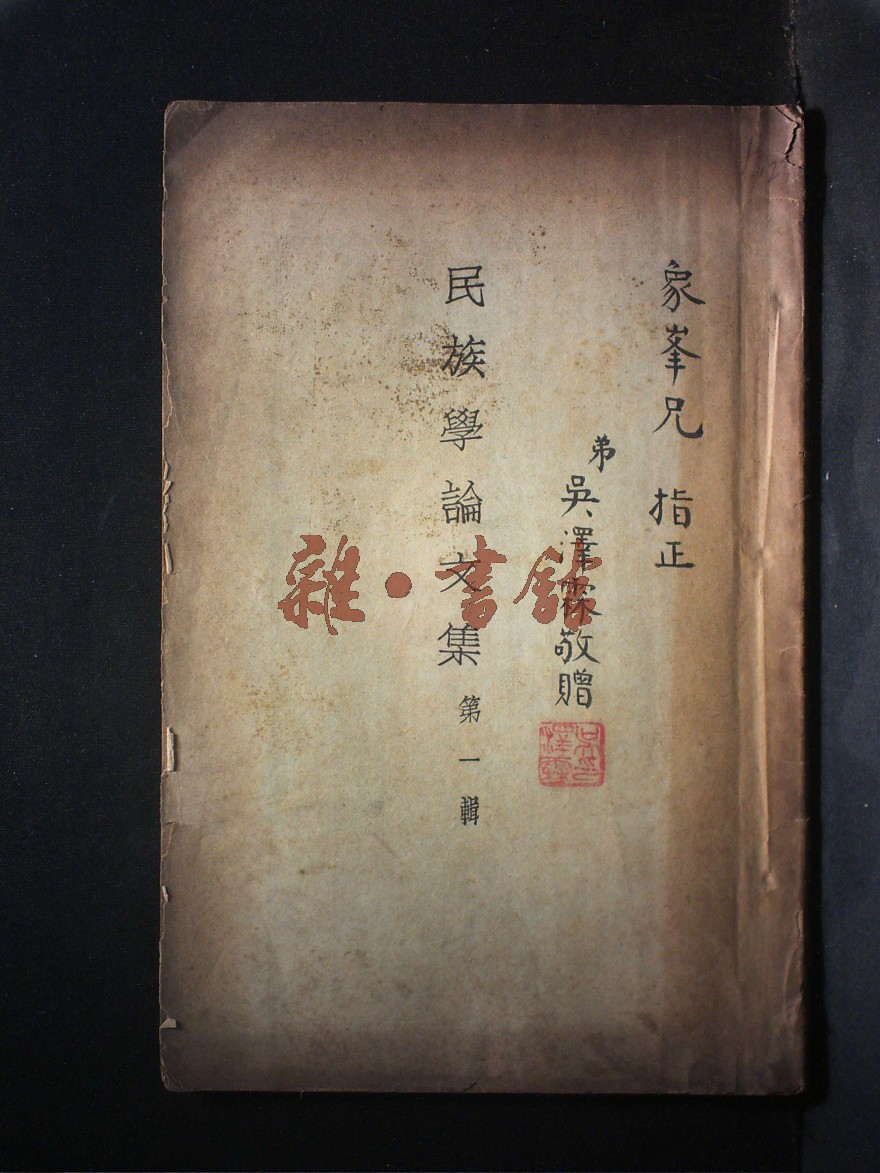 象峯兄 指正
弟 吳澤霖敬贈
吳澤霖印
民族學論文集 第一輯
雜·書館